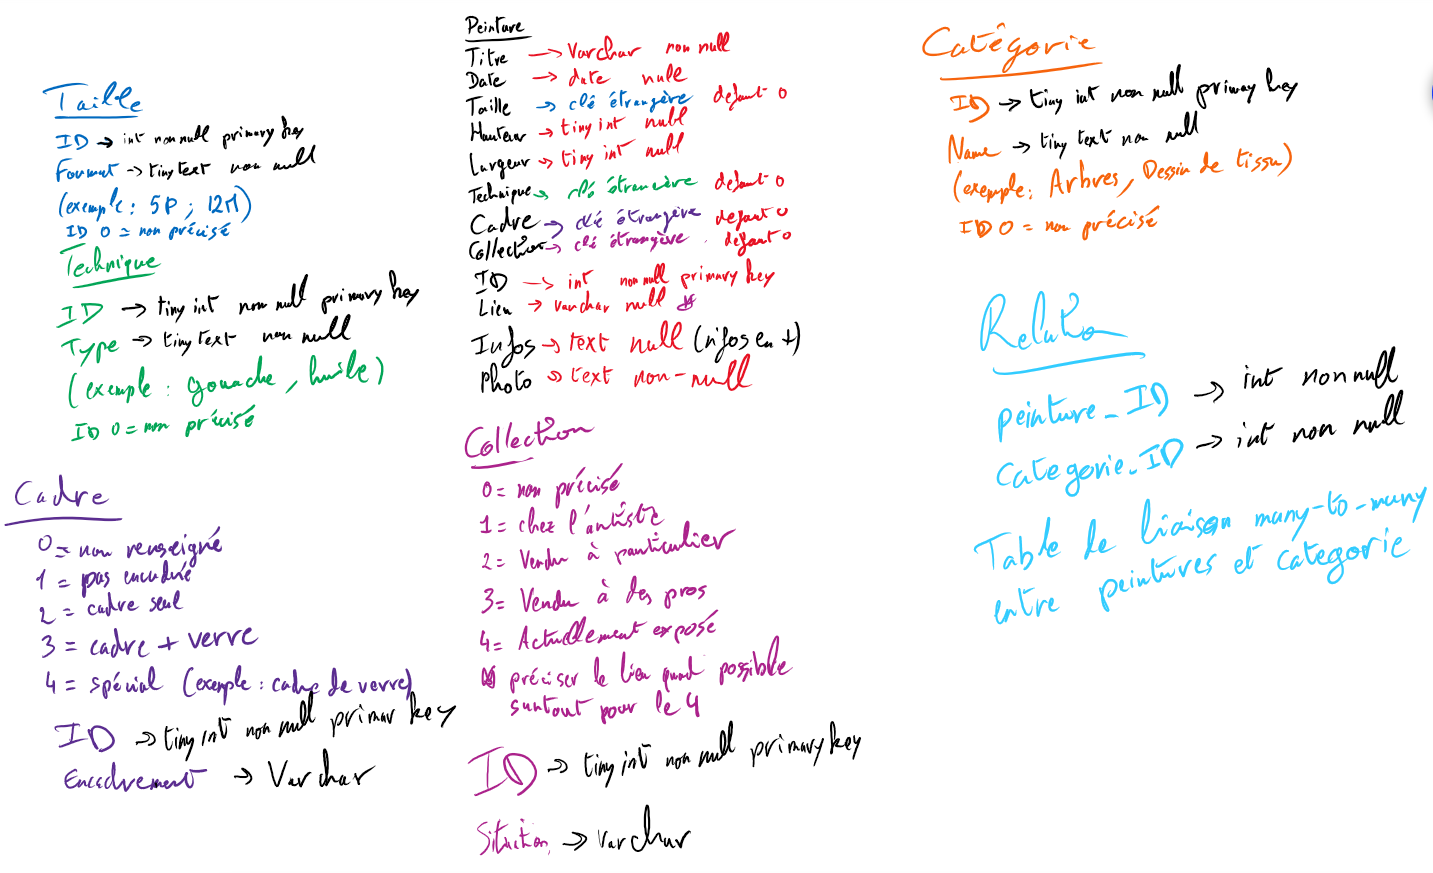 Taille
ID → int non null primary key
Format → tinytext non null
(exemple : 5P ; 12M)
ID 0 = non précisé
Technique
ID → tiny int non null primary key
Type → tinytext non null
(exemple : gouache, huile)
ID 0 = non précisé
Cadre
0 = non renseigné
1 = pas encadré
2 = cadre seul
3 = cadre + verre
4 = spécial (exemple : cadre de verre)
ID → tiny int non null primar key
Encadrement → Varchar
Peinture
Titre → Varchar non null
Date → date null
Taille → clé étrangère defaut 0
Hauteur → tiny int null
Largeur → tiny int null
Technique → clé étrangère defaut 0
Cadre → clé étrangère defaut 0
Collection → clé étrangère defaut 0
ID → int non null primary key
Lieu → varchar null
Infos → text null (infos en +)
Photo → text non-null
Collection
0 = non précisé
1 = chez l'artiste
2 = Vendu à particulier
3 = Vendu à des pros
4 = Actuellement exposé
préciser le lieu quand possible
surtout pour le 4
ID → tiny int non null primary key
Situation → varchar
Catégorie
ID → tiny int non null primary key
Name → tiny text non null
(exemple : Arbres, Dessin de tissu)
ID 0 = non précisé
Relation
peinture_ID → int non null
categorie_ID → int non null
Table de liaison many-to-many
entre peintures et categorie